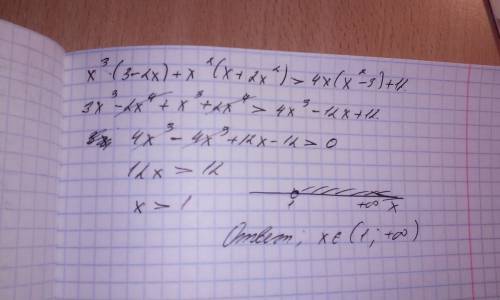 x³·(3-2x)+x²(x+2x²)>4x(x²-3)+12
3x³-2x⁴+x³+2x⁴>4x³-12x+12
4x³-4x³+12x-12>0
12x>12
x>1
1 +∞ x
Ответ; x∈(1;+∞)